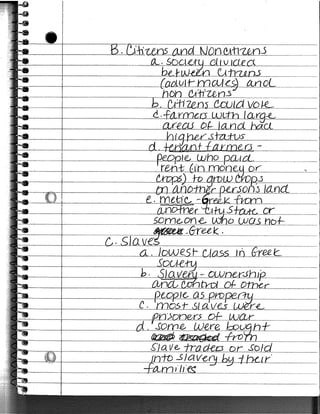 B. Citizens and Noncitizens
a. society divided
between Citizens
(adult males) and
non citizens
b. Citizens could vote
c. farmers with large
areas of land had
higher status
d. tenant farmers -
people who paid
rent (in money or
crops) to grow crops
on another persons land
e. metic - Greek from
another City State or
someone who was not
Greek.
C. Slaves
a. lowest class in Greek
Society
b. Slavery - ownership
and control of other
people as property
c. most slaves were
prisoners of war
d. some were bought
from
slave traders or sold
into slavery by their
families